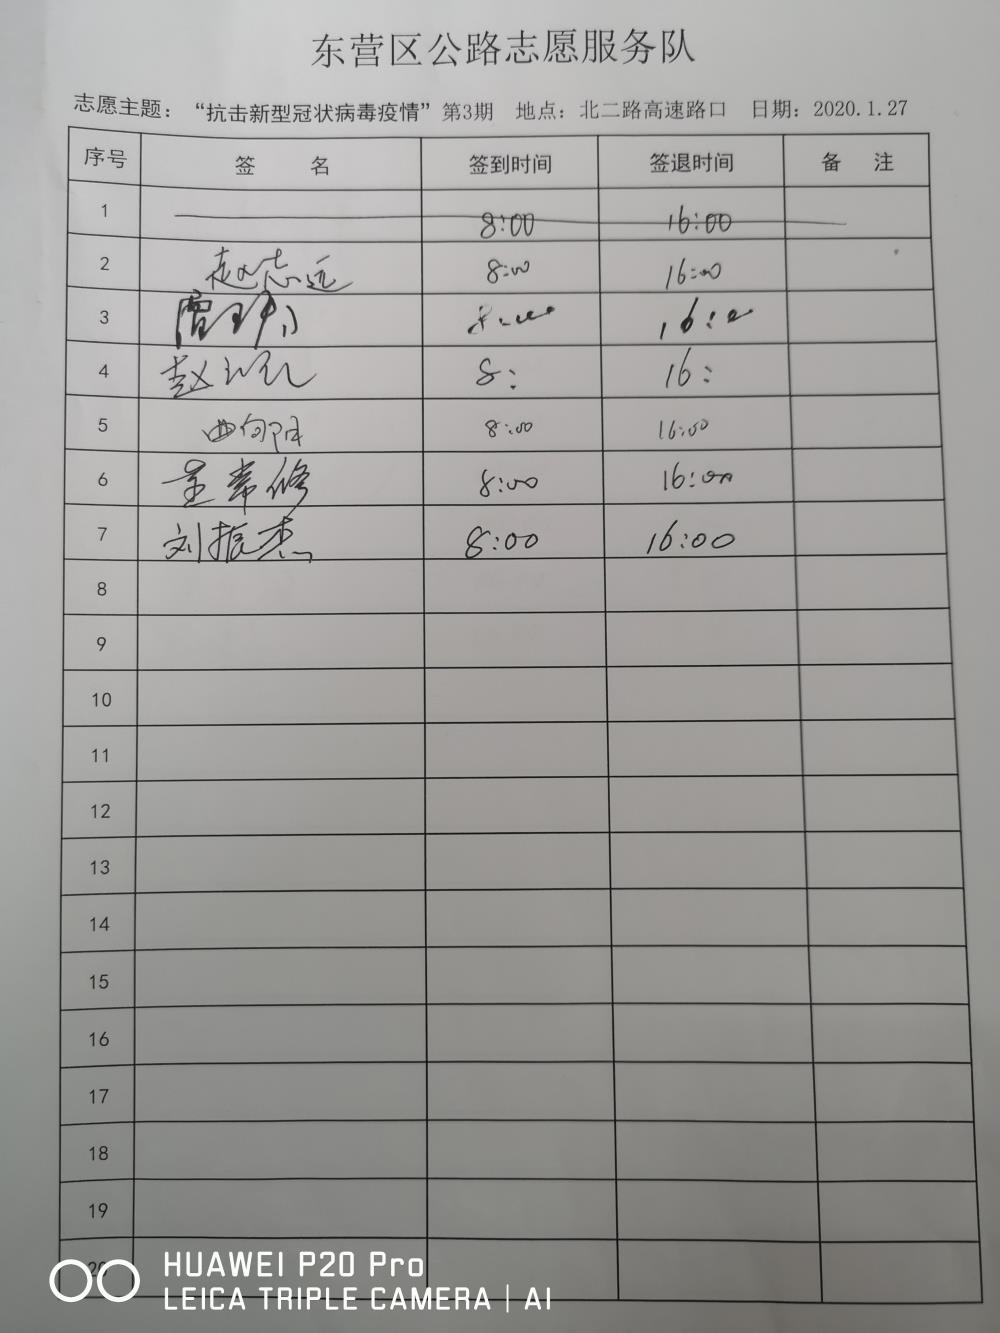 东营区公路志愿服务队
志愿主题：“抗击新型冠状病毒疫情”第3期 地点：北二路高速路口 日期：2020.1.27
序号 签 名 签到时间 签退时间 备 注
1 8:00 16:00
2 赵志远 8:00 16:00
3 16:
4 赵 8: 16:
5 曲向阳 8:00 16:00
6 常修 8:00 16:00
7 刘振杰 8:00 16:00
8
9
10
11
12
13
14
15
16
17
18
19
20
HUAWEI P20 Pro
LEICA TRIPLE CAMERA | AI